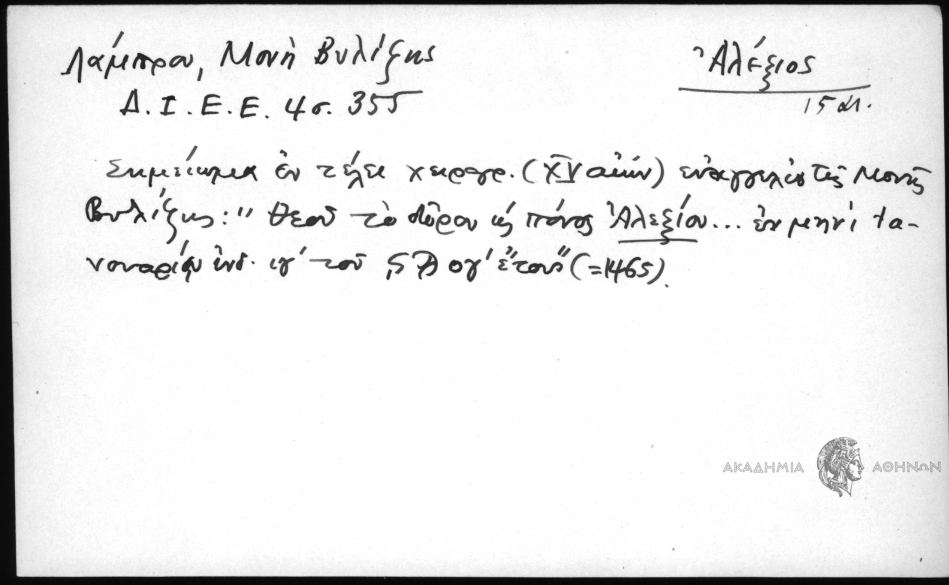 Λάμπρου, Μονὴ Βυλίζης
Ἀλέξιος
Δ. Ι. Ε. Ε. 4 σ. 355
15 αι.
Σημείωμα ἐν τέλει χειρογρ. (XV αἰών) εὐαγγελίου τῆς Μονῆς
Βυλίζης: " Θεοῦ τὸ δῶρον κ̀ πόνος Ἀλεξίου... ἐν μηνὶ Ια-
νουαρίῳ ἰνδ. ιγ' τοῦ ϛϡογ' ἔτους" (=1465).
ΑΚΑΔΗΜΙΑ ΑΘΗΝΩΝ